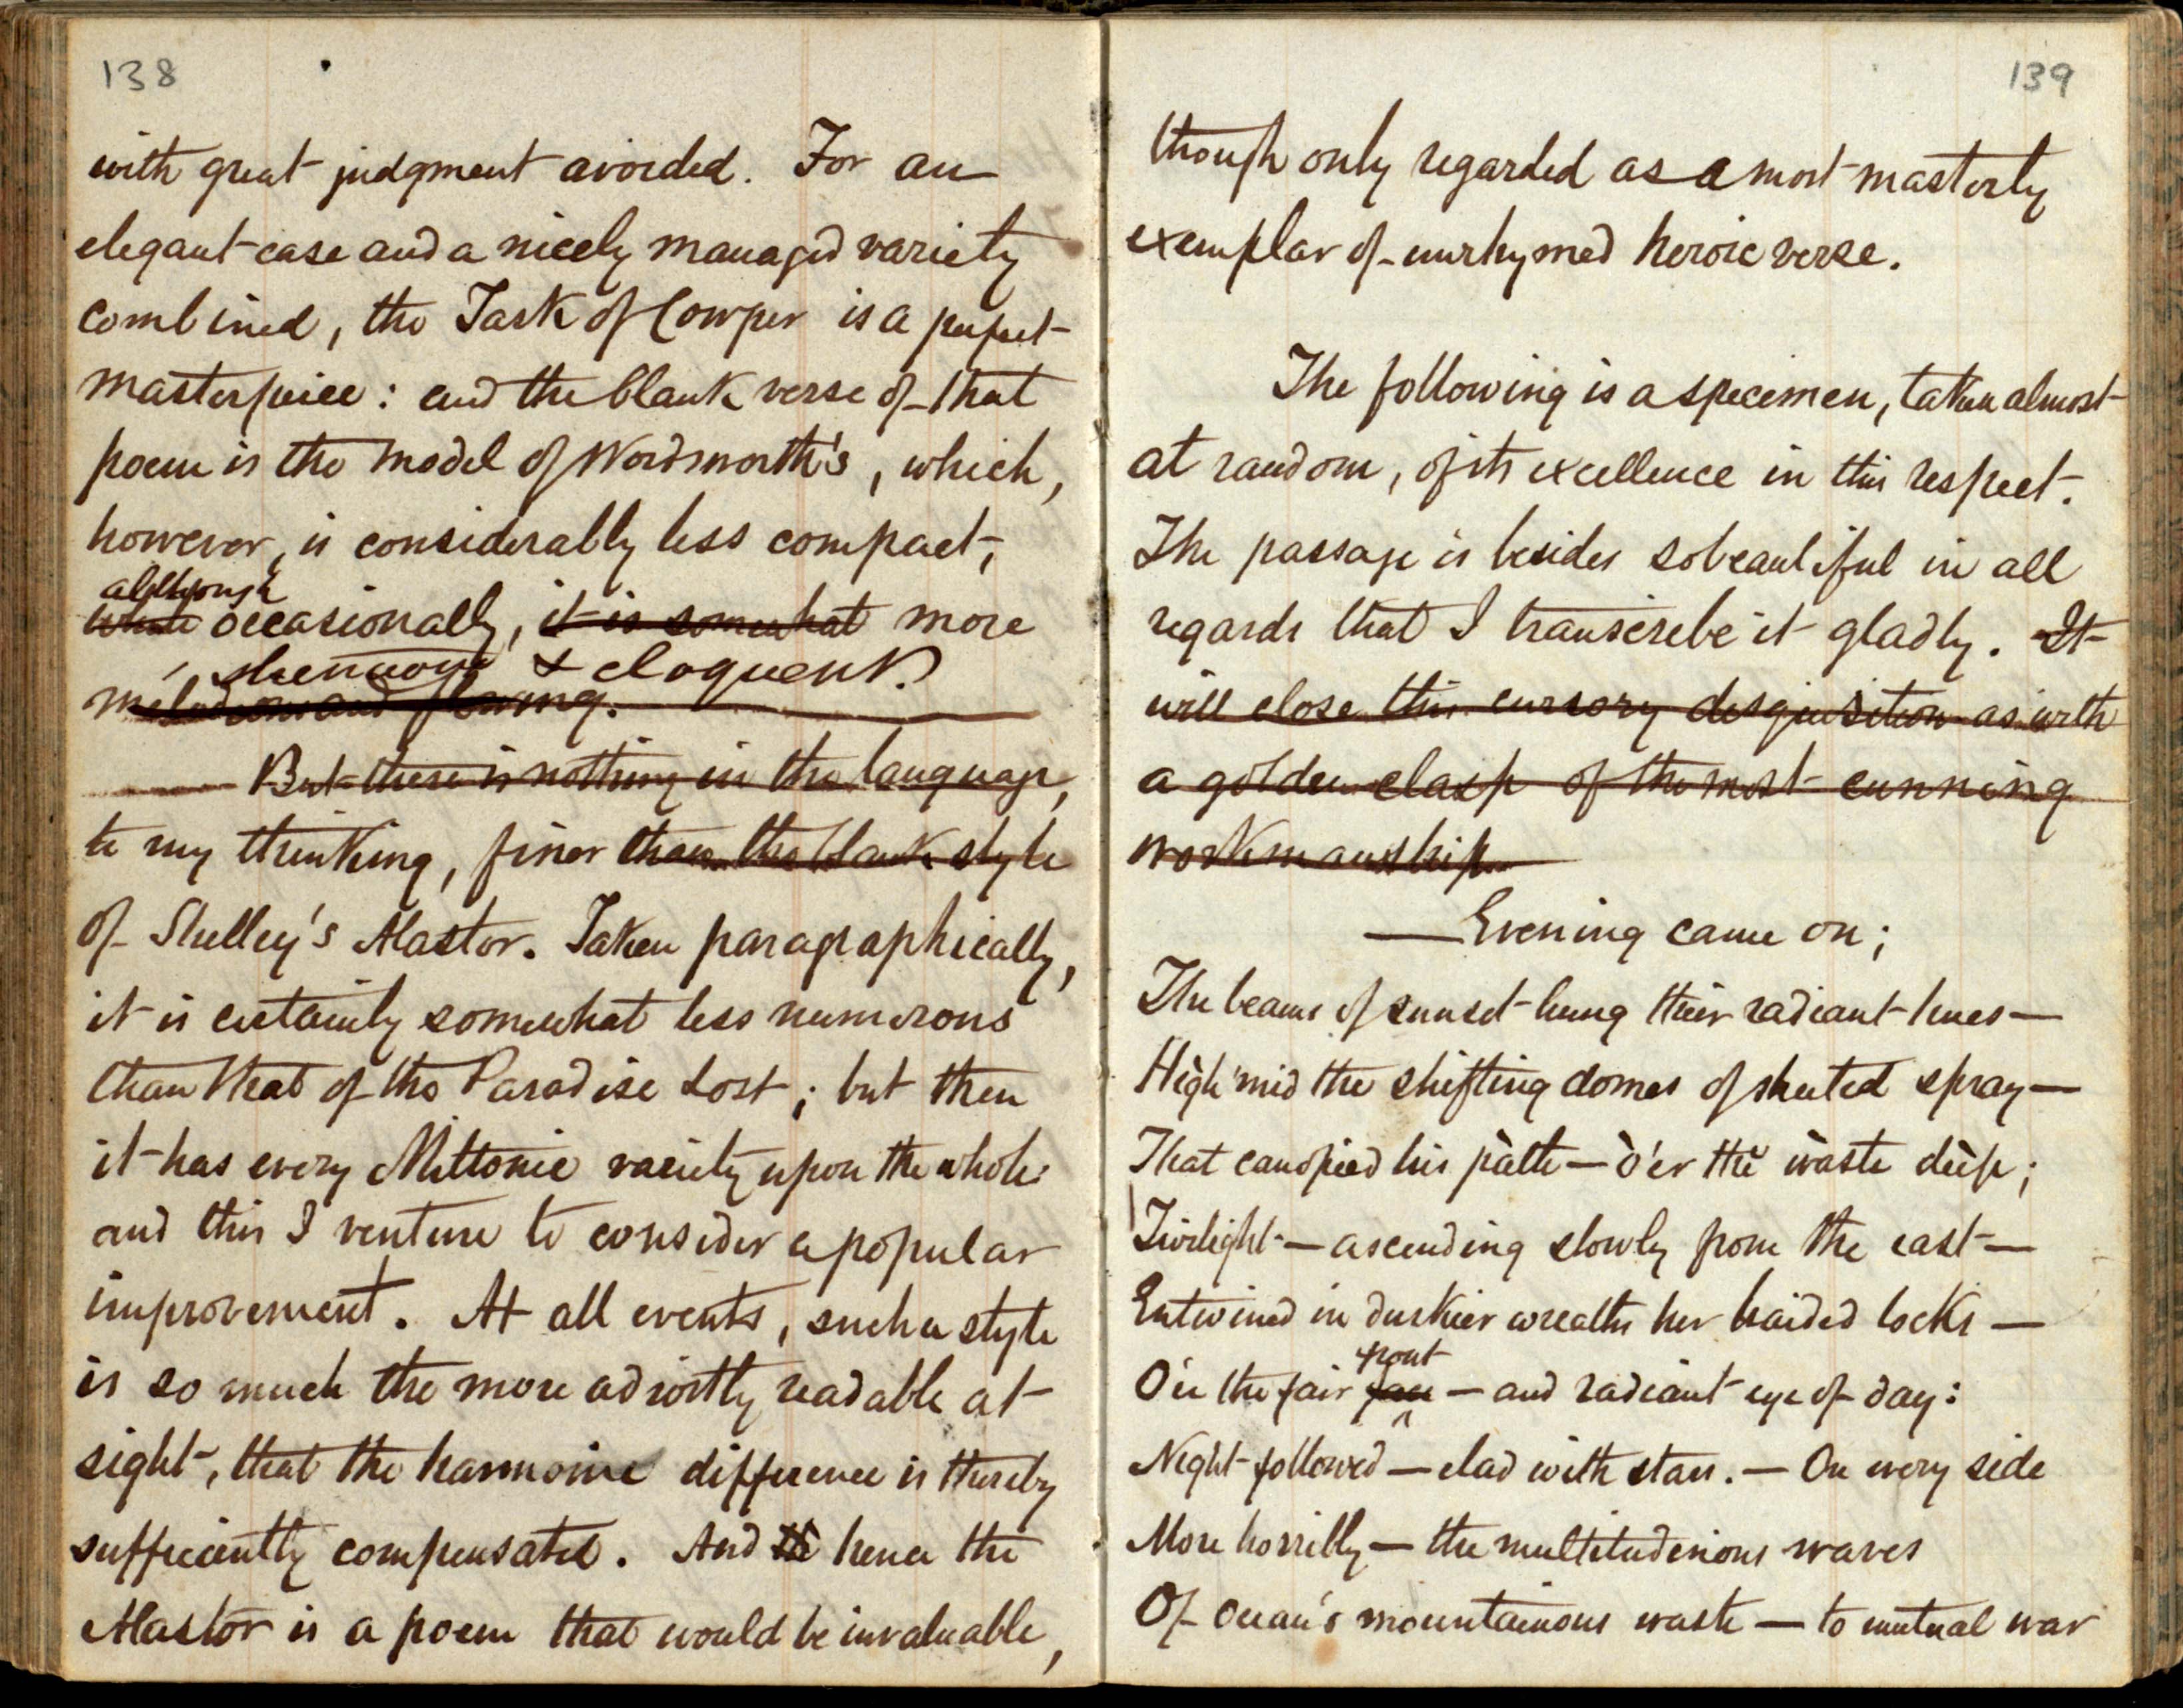 138
with great judgment avoided. For an
elegant ease and a nicely managed variety
combined, the Task of Cowper is a perfect
masterpiece: and the blank verse of that
poem is the model of Wordsworth's, which,
however, is considerably less compact,
although
while occasionally, it is somewhat more
strenuous & eloquent.
melodious and flowing.
But there is nothing in the language,
to my thinking, finer than the blank style
of Shelley's Alastor. Taken paragraphically,
it is certainly somewhat less numerous
than that of the Paradise Lost; but then
it has every Miltonic variety upon the whole:
and this I venture to consider a popular
improvement. At all events, such a style
is so much the more adroitly readable at
sight, that the harmonic difference is thereby
sufficiently compensated. And hence the
Alastor is a poem that would be invaluable,
139
though only regarded as a most masterly
exemplar of unrhymed heroic verse.
The following is a specimen, taken almost
at random, of its excellence in this respect.
The passage is besides so beautiful in all
regards that I transcribe it gladly. It
will close this cursory disquisition as with
a golden clasp of the most cunning
workmanship.
—Evening came on;
The beams of sunset hung their radiant hues—
High 'mid the shifting domes of sheeted spray—
That canopied his path—o'er the waste deep;
Twilight—ascending slowly from the east—
Entwined in duskier wreaths her braided locks—
front
O'er the fair face—and radiant eye of day:
Night followed—clad with stars.—On every side
More horribly—the multitudinous waves
Of Ocean's mountainous waste—to mutual war